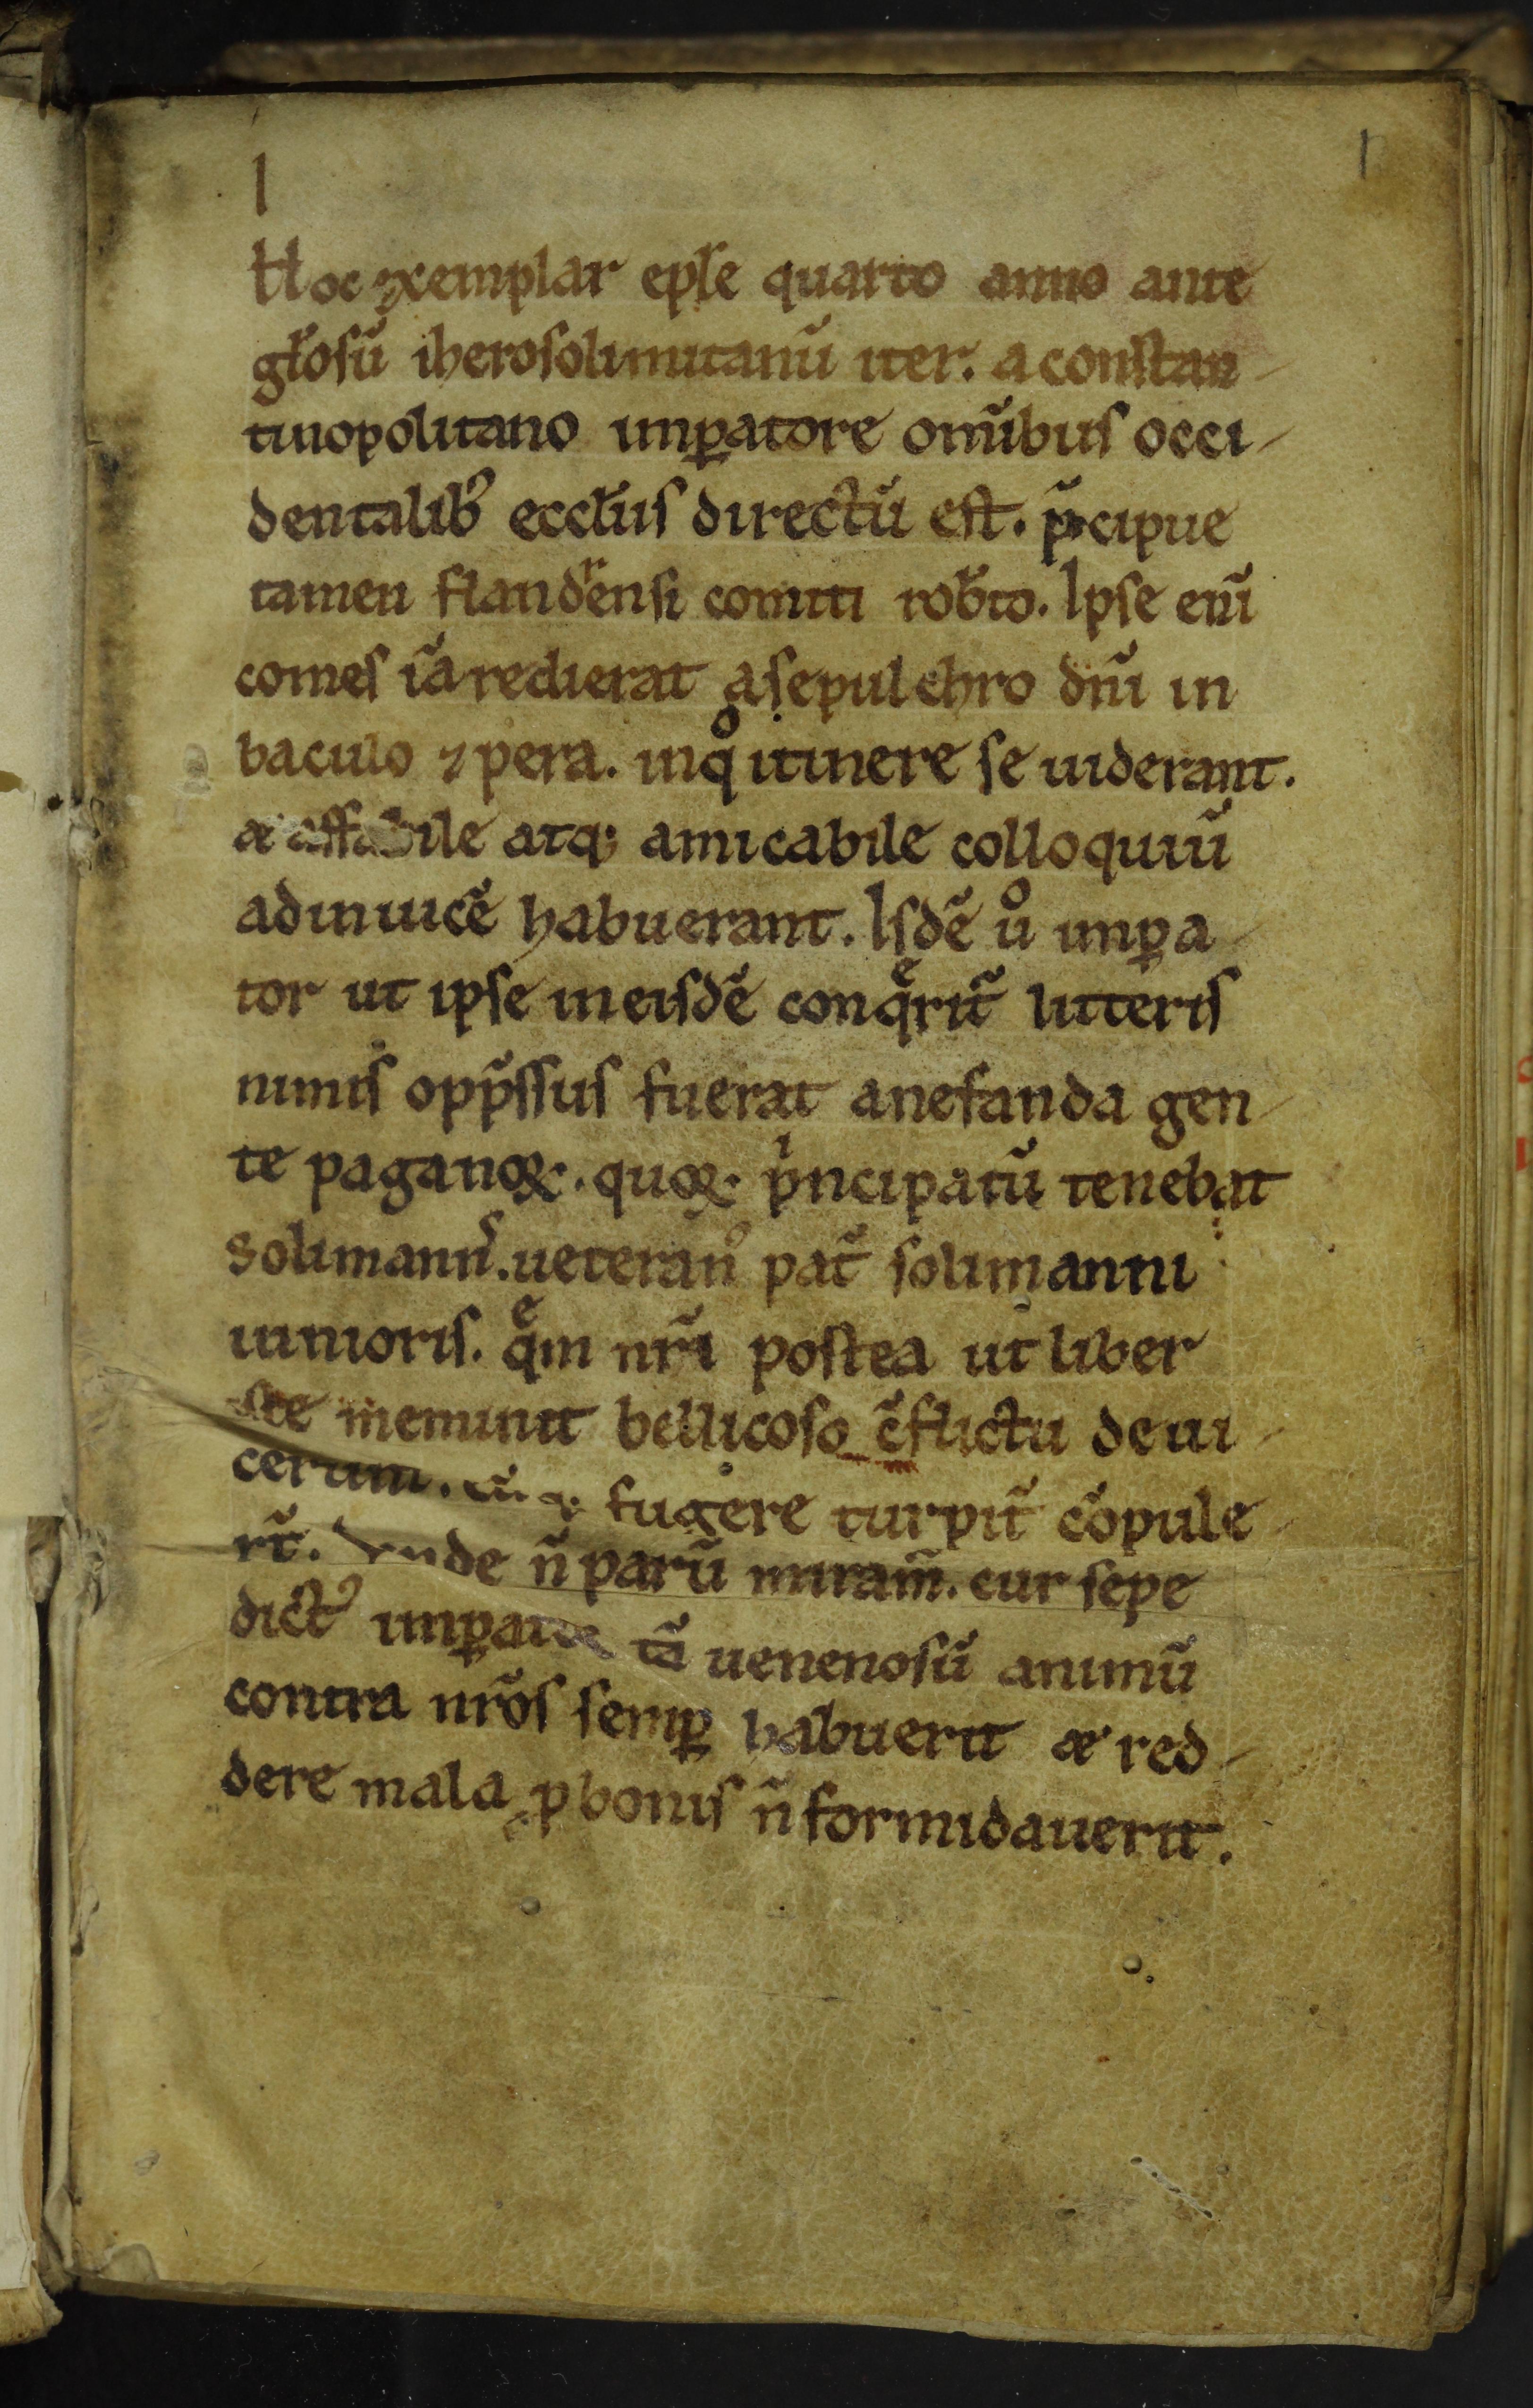 1
Hoc exemplar epłe quarto anno ante
głosū iherosolimitanū iter. a constan-
tinopolitano imꝑatore omībus occi-
dentalibꝰ eccłiis directū est. p̄cipue
tamen flandr̄ensi comiti rob̄to. Ipse eni̅
comes iā redierat a sepulchro dn̄i in
baculo ⁊ pera. in qͦ itinere se uiderant.
& affabile atq; amicabile colloquiū
adinuicē habuerant. Isdē uͦ imꝑa-
tor ut ipse in eisdē conqͤrit̄ litteris
nimis opp̄ssus fuerat a nefanda gen-
te paganoꝝ. quoꝝ. pͥncipatū tenebat
solimannꝰ. ueteranꝰ pat̄ solimanni
iunioris. qͤm nr̄i postea ut liber
iste meminit bellicoso c̄flictu deui-
cerunt. fugere turpit̄ cōpule-
rt̄. Vnde n̄ parū miram̄. cur sepe
dictꝰ imꝑator tā uenenosū animū
contra nr̄os semꝑ habuerit & red-
dere mala ꝓ bonis n̄ formidauerit.